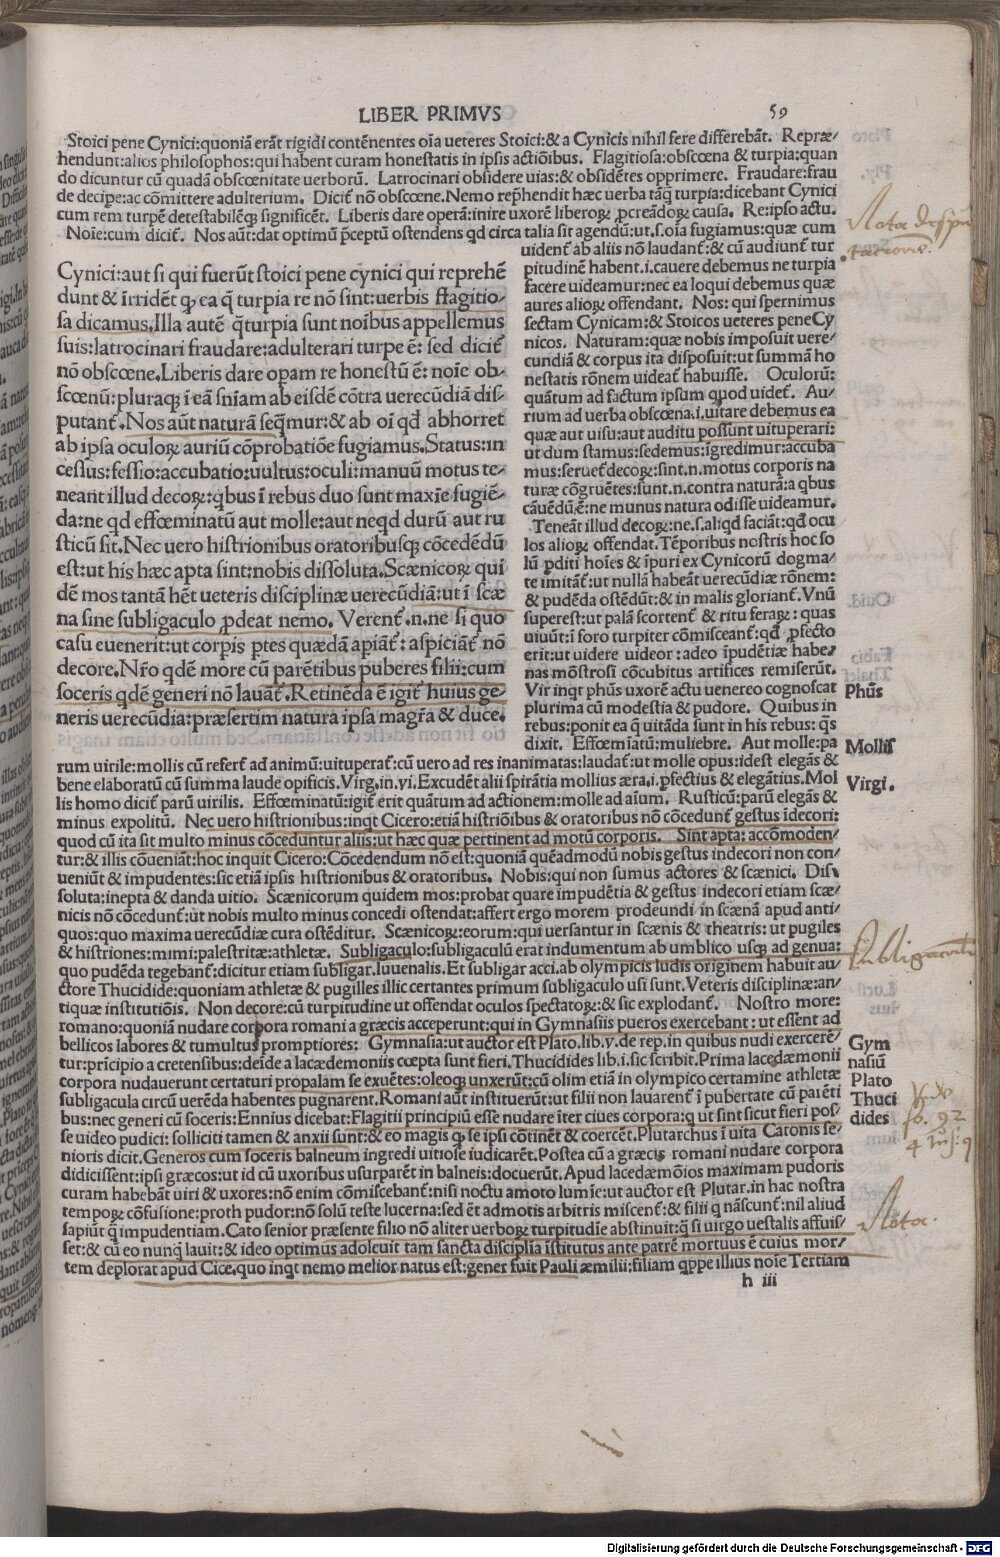 LIBER PRIMVS
59
Stoici pene Cynici:quoniã erãt rigidi contẽnentes oĩa ueteres Stoici:& a Cynicis nihil fere differebãt. Repræ/
hendunt:alios philosophos:qui habent curam honestatis in ipsis actiõibus. Flagitiosa:obscœna & turpia:quan
do dicuntur cũ quadã obscœnitate uerborũ. Latrocinari obsidere uias:& obsidẽtes opprimere. Fraudare:frau
de decipe:ac cõmittere adulterium. Dicit᷑ nõ obscœne.Nemo rep̃hendit hæc uerba tãq̃ turpia:dicebant Cynici
cum rem turpẽ detestabilẽqꝫ significẽt. Liberis dare operã:inire uxorẽ liberoꝝ ꝓcreãdoꝝ causa. Re:ipso actu.
Noĩe:cum dicit᷑. Nos aũt:dat optimũ p̃ceptũ ostendens qd circa talia sit agendũ:ut.s.oĩa fugiamus:quæ cum
uident᷑ ab aliis nõ laudant᷑:& cũ audiunt᷑ tur
pitudinẽ habent.i.cauere debemus ne turpia
facere uideamur:nec ea loqui debemus quæ
aures alioꝝ offendant. Nos: qui spernimus
sectam Cynicam:& Stoicos ueteres peneCy
nicos. Naturam:quæ nobis imposuit uere/
cundiã & corpus ita disposuit:ut summã ho
nestatis rõnem uideat᷑ habuisse. Oculorũ:
quãtum ad factum ipsum quod uidet᷑. Au/
rium ad uerba obscœna.i.uitare debemus ea
quæ aut uisu:aut auditu possunt uituperari:
ut dum stamus:sedemus:igredimur:accuba
mus:seruet᷑ decoꝝ:sint.n.motus corporis na
turæ cõgruẽtes:sunt.n.contra naturã:a qbus
cãuẽdũ,ẽ:ne munus natura odisse uideamur.
Teneãt illud decoꝝ:ne.s.aliqd faciãt:qd ocu
los alioꝝ offendat.Tẽporibus nostris hoc so
lũ ꝑditi hoĩes & ĩpuri ex Cynicorũ dogma/
te imitãt᷑:ut nullã habeãt uerecũdiæ rõnem:
& pudẽda ostẽdũt:& in malis gloriant᷑.Vnũ
superest:ut palã scortent᷑ & ritu feraꝝ: quas
uiuũt:i foro turpiter cõmisceant᷑:qd ꝓfecto
erit:ut uidere uideor:adeo ĩpudẽtiæ habe/
nas mõstrosi cõcubitus artifices remiserũt.
Vir inqt phũs uxorẽ actu uenereo cognoscat
plurima cũ modestia & pudore. Quibus in
rebus:ponit ea q̃ uitãda sunt in his rebus: q̃s
dixit. Effœmĩatũ:muliebre. Aut molle:pa
Cynici:aut si qui fuerũt stoici pene cynici qui reprehẽ
dunt & irridẽt ꝙ ea q̃ turpia re nõ sint:uerbis flagitio/
sa dicamus.Illa autẽ q̃turpia sunt noĩbus appellemus
suis:latrocinari fraudare:adulterari turpe ẽ: sed dicit᷑
nõ obscœne.Liberis dare opam re honestũ ẽ: noĩe ob/
scœnũ:pluraqꝫ ĩ eã sñiam ab eisdẽ cõtra uerecũdiã dis/
putant᷑.Nos aũt naturã seq̃mur:& ab oĩ qd abhorret
ab ipsa oculoꝝ auriũ cõprobatiõe fugiamus.Status:in
cessus:sessio:accubatio:uultus:oculi:manuũ motus te/
neant illud decoꝝ:qbus ĩ rebus duo sunt maxĩe fugiẽ/
da:ne qd effœminatũ aut molle:aut neqd durũ aut ru
sticũ sit.Nec uero histrionibus oratoribusqꝫ cõcedẽdũ
est:ut his hæc apta sint:nobis dissoluta.Scænicoꝝ qui
dẽ mos tantã hẽt ueteris disciplinæ uerecũdiã:ut ĩ scæ
na sine subligaculo ꝓdeat nemo. Verent᷑.n.ne si quo
casu euenerit:ut corpis ptes quædã apiãt᷑:aspiciãt᷑ nõ
decore.Nr̃o qdẽ more cũ parẽtibus puberes filii:cum
soceris qdẽ generi nõ lauãt᷑.Retinẽda ẽ igit᷑ huius ge/
neris uerecũdia:præsertim natura ipsa magr̃a & duce.
rum uirile:mollis cũ refert᷑ ad animũ:uituperat᷑:cũ uero ad res inanimatas:laudat᷑:ut molle opus:idest elegãs &
bene elaboratũ cũ summa laude opificis.Virg.in.vi.Excudẽt alii spirãtia mollius æra.i.ꝑfectius & elegãtius.Mol
lis homo dicit᷑ parũ uirilis. Effœminatũ:igit᷑ erit quãtum ad actionem:molle ad aĩum. Rusticũ:parũ elegãs &
minus expolitũ. Nec uero histrionibus:inqt Cicero:etiã histriõibus & oratoribus nõ cõcedunt᷑ gestus idecori:
quod cũ ita sit multo minus cõceduntur aliis:ut hæc quæ pertinent ad motũ corporis. Sint apta: accõmoden/
tur:& illis cõueniãt:hoc inquit Cicero:Cõcedendum nõ est:quoniã quẽadmodũ nobis gestus indecori non con/
ueniũt & impudentes:sic etiã ipsis histrionibus & oratoribus. Nobis:qui non sumus actores & scænici. Dis
soluta:inepta & danda uitio. Scænicorum quidem mos:probat quare impudẽtia & gestus indecori etiam scæ/
nicis nõ cõcedunt᷑:ut nobis multo minus concedi ostendat:affert ergo morem prodeundi in scænã apud anti/
quos:quo maxima uerecũdiæ cura ostẽditur. Scænicoꝝ:eorum:qui uersantur in scænis & theatris: ut pugiles
& histriones:mimi:palestritæ:athletæ. Subligaculo:subligaculũ erat indumentum ab umblico usqꝫ ad genua:
quo pudẽda tegebant᷑:dicitur etiam subligar.Iuuenalis.Et subligar acci.ab olympicis ludis originem habuit au/
ctore Thucidide:quoniam athletæ & pugilles illic certantes primum subligaculo usi sunt.Veteris disciplinæ:an/
tiquæ institutiõis. Non decore:cũ turpitudine ut offendat oculos spectatoꝝ:& sic explodant᷑. Nostro more:
romano:quoniã nudare corpora romani a græcis acceperunt:qui in Gymnasiis pueros exercebant: ut essent ad
bellicos labores & tumultus promptiores: Gymnasia:ut auctor est Plato.lib.v.de rep.in quibus nudi exercerẽ/
tur:prĩcipio a cretensibus:deĩde a lacædemoniis cœpta sunt fieri.Thucidides lib.i.sic scribit.Prima lacedæmonii
corpora nudauerunt certaturi propalam se exuẽtes:oleoqꝫ unxerũt:cũ olim etiã in olympico certamine athletæ
subligacula circũ uerẽda habentes pugnarent.Romani aũt instituerũt:ut filii non lauarent᷑ ĩ pubertate cũ parẽti
bus:nec generi cũ soceris:Ennius dicebat:Flagitii principiũ esse nudare ĩter ciues corpora:q ut sint sicut fieri pos/
se uideo pudici: solliciti tamen & anxii sunt:& eo magis ꝙ se ipsi cõtinẽt & coercẽt.Plutarchus ĩ uita Catonis se/
nioris dicit.Generos cum soceris balneum ingredi uitiose iudicarẽt.Postea cũ a græcis romani nudare corpora
didicissent:ipsi græcos:ut id cũ uxoribus usurparẽt in balneis:docuerũt. Apud lacedæmõios maximam pudoris
curam habebãt uiri & uxores:nõ enim cõmiscebant᷑:nisi noctu amoto lumĩe:ut auctor est Plutar.in hac nostra
tempoꝝ cõfusione:proth pudor:nõ solũ teste lucerna:sed ẽt admotis arbitris miscent᷑:& filii q nãscunt᷑:nil aliud
sapiũt q̃ impudentiam.Cato senior præsente filio nõ aliter uerboꝝ turpitudĩe abstinuit:q̃ si uirgo uestalis affuis/
set:& cũ eo nunq̃ lauit:& ideo optimus adoleuit tam sancta discipĩa ĩstitutus ante patrẽ mortuus ẽ cuius mor/
tem deplorat apud Cice.quo inqt nemo melior natus est:gener fuit Pauli æmilii:filiam qppe illius noĩe Tertiam
h iii
Phũs
Mollis
Virgi.
Gym
nasiũ
Plato
Thuci
dides
Nota
Subligaculũ
fo. 92
Nota.
Digitalisierung gefördert durch die Deutsche Forschungsgemeinschaft - DFG